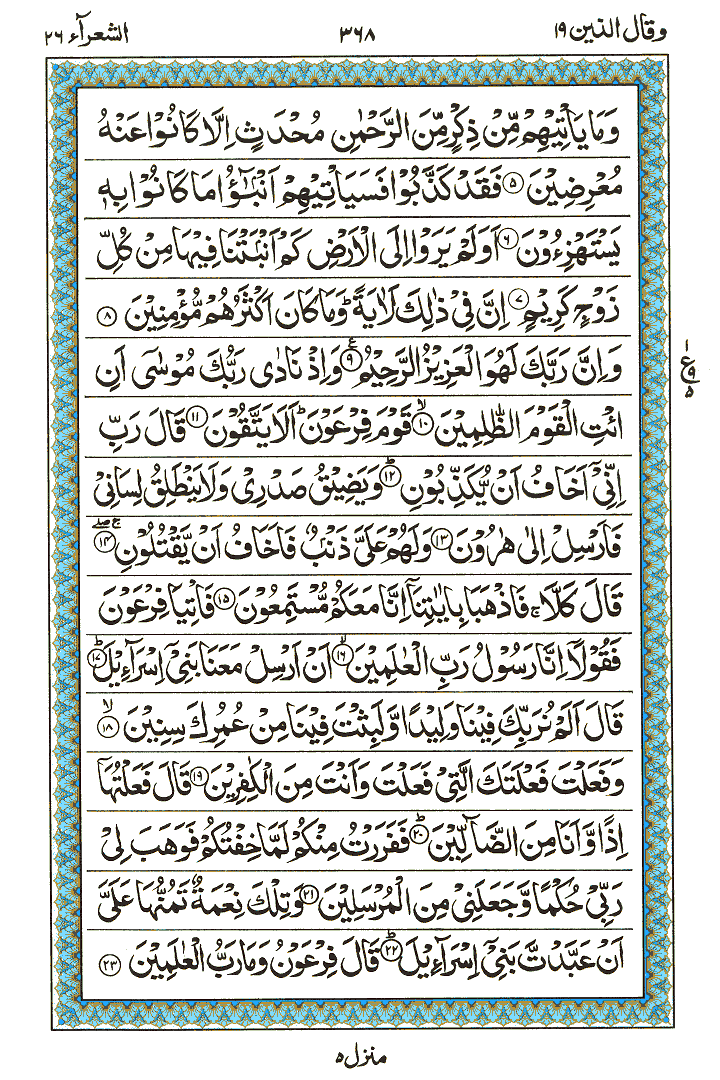 وقال الذين ١٩ ٣٦٨ الشعرآء ٢٦
وَمَا يَاْتِيْهِمْ مِّنْ ذِكْرٍ مِّنَ الرَّحْمٰنِ مُحْدَثٍ اِلَّا كَانُوْا عَنْهُ
مُعْرِضِيْنَ ۝۵ فَقَدْ كَذَّبُوْا فَسَيَاْتِيْهِمْ اَنْۢبٰٓؤُا مَا كَانُوْا بِهٖ
يَسْتَهْزِءُوْنَ ۝۶ اَوَلَمْ يَرَوْا اِلَى الْاَرْضِ كَمْ اَنْۢبَتْنَا فِيْهَا مِنْ كُلِّ
زَوْجٍ كَرِيْمٍ ۝۷ اِنَّ فِيْ ذٰلِكَ لَاٰيَةً ؕ وَمَا كَانَ اَكْثَرُهُمْ مُّؤْمِنِيْنَ ۝۸
وَاِنَّ رَبَّكَ لَهُوَ الْعَزِيْزُ الرَّحِيْمُ ۝۹ ع وَاِذْ نَادٰى رَبُّكَ مُوْسٰٓى اَنِ
ائْتِ الْقَوْمَ الظّٰلِمِيْنَ ۝۱۰ ۙ قَوْمَ فِرْعَوْنَ ؕ اَلَا يَتَّقُوْنَ ۝۱۱ قَالَ رَبِّ
اِنِّيْٓ اَخَافُ اَنْ يُّكَذِّبُوْنِ ۝۱۲ ؕ وَيَضِيْقُ صَدْرِيْ وَلَا يَنْطَلِقُ لِسَانِيْ
فَاَرْسِلْ اِلٰى هٰرُوْنَ ۝۱۳ وَلَهُمْ عَلَيَّ ذَنْۢبٌ فَاَخَافُ اَنْ يَّقْتُلُوْنِ ۝۱۴ ۚ
قَالَ كَلَّا ۚ فَاذْهَبَا بِاٰيٰتِنَآ اِنَّا مَعَكُمْ مُّسْتَمِعُوْنَ ۝۱۵ فَاْتِيَا فِرْعَوْنَ
فَقُوْلَآ اِنَّا رَسُوْلُ رَبِّ الْعٰلَمِيْنَ ۝۱۶ ۙ اَنْ اَرْسِلْ مَعَنَا بَنِيْٓ اِسْرَآءِيْلَ ۝۱۷ ؕ
قَالَ اَلَمْ نُرَبِّكَ فِيْنَا وَلِيْدًا وَّلَبِثْتَ فِيْنَا مِنْ عُمُرِكَ سِنِيْنَ ۝۱۸ ۙ
وَفَعَلْتَ فَعْلَتَكَ الَّتِيْ فَعَلْتَ وَاَنْتَ مِنَ الْكٰفِرِيْنَ ۝۱۹ قَالَ فَعَلْتُهَآ
اِذًا وَّاَنَا مِنَ الضَّآلِّيْنَ ۝۲۰ ؕ فَفَرَرْتُ مِنْكُمْ لَمَّا خِفْتُكُمْ فَوَهَبَ لِيْ
رَبِّيْ حُكْمًا وَّجَعَلَنِيْ مِنَ الْمُرْسَلِيْنَ ۝۲۱ وَتِلْكَ نِعْمَةٌ تَمُنُّهَا عَلَيَّ
اَنْ عَبَّدْتَّ بَنِيْٓ اِسْرَآءِيْلَ ۝۲۲ ؕ قَالَ فِرْعَوْنُ وَمَا رَبُّ الْعٰلَمِيْنَ ۝۲۳
منزل ٥